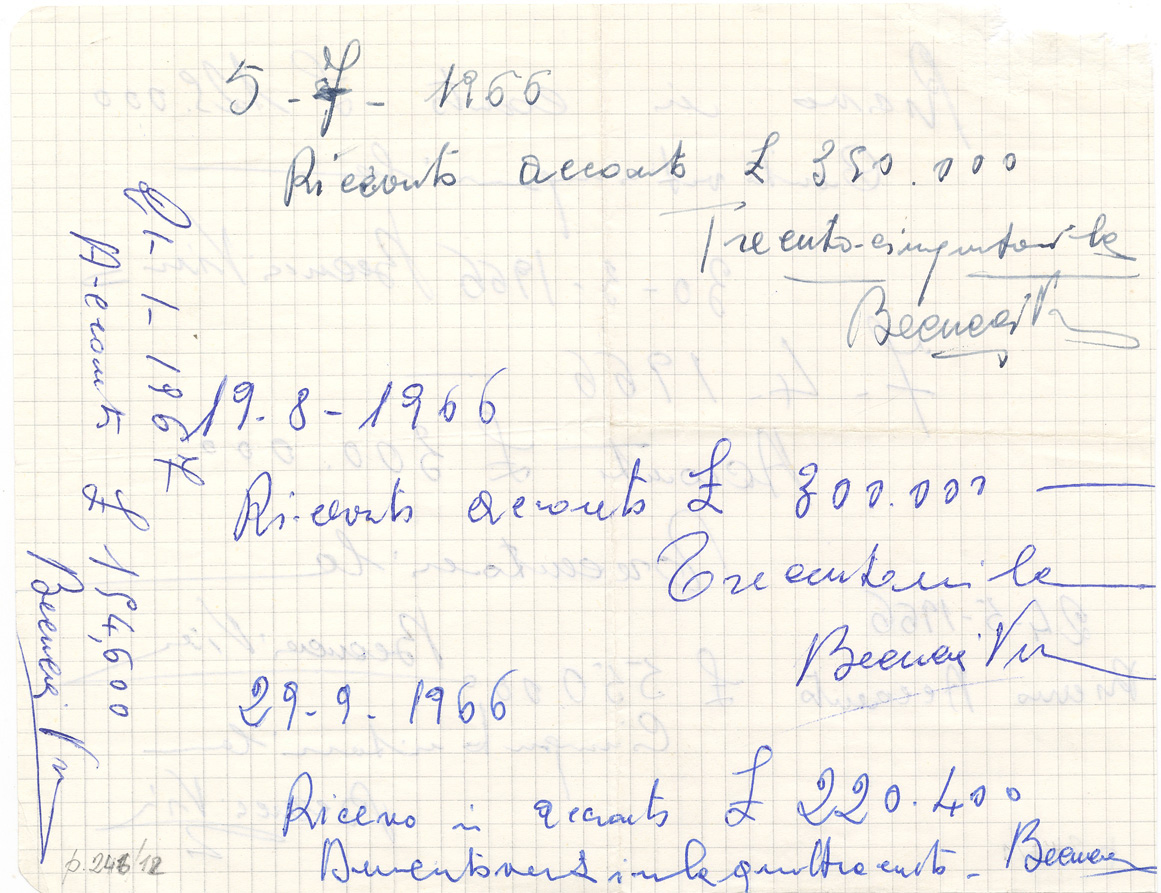 5-7-1966
Ricevuto acconto £ 350.000
Trecento-cinquantamila
19-8-1966
Ricevuto acconto £ 300.000
Trecentomila
29-9-1966
Ricevo in acconto £ 220.400
Duecentoventimilaquattrocento -
21-1-1967
Acconto £ 154,600
p. 246/12